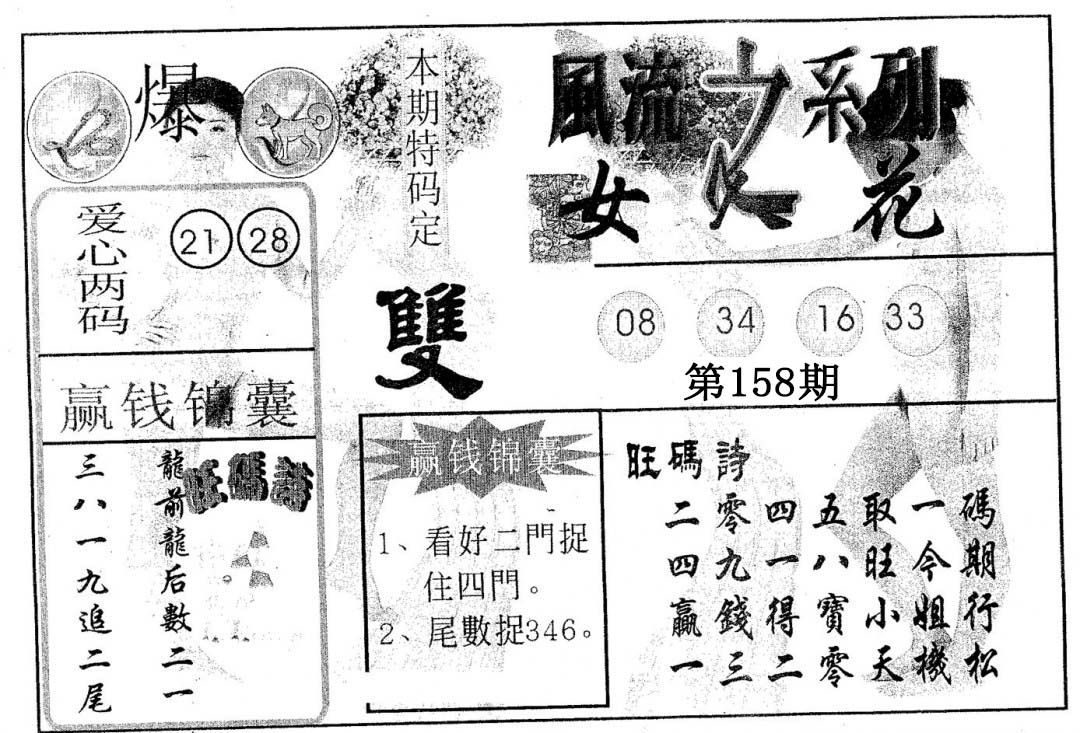 爆
本期特码定
雙
風流之系列
女人花
爱心两码
21 28
08 34 16 33
第158期
赢钱锦囊
旺碼詩
龍前龍后數二一
三八一九追二尾
赢钱锦囊
1、看好二門捉
住四門。
2、尾數捉346。
旺碼詩
碼期行松
一今姐機
取旺小天
五八寶零
四一得二
零九錢三
二四贏一